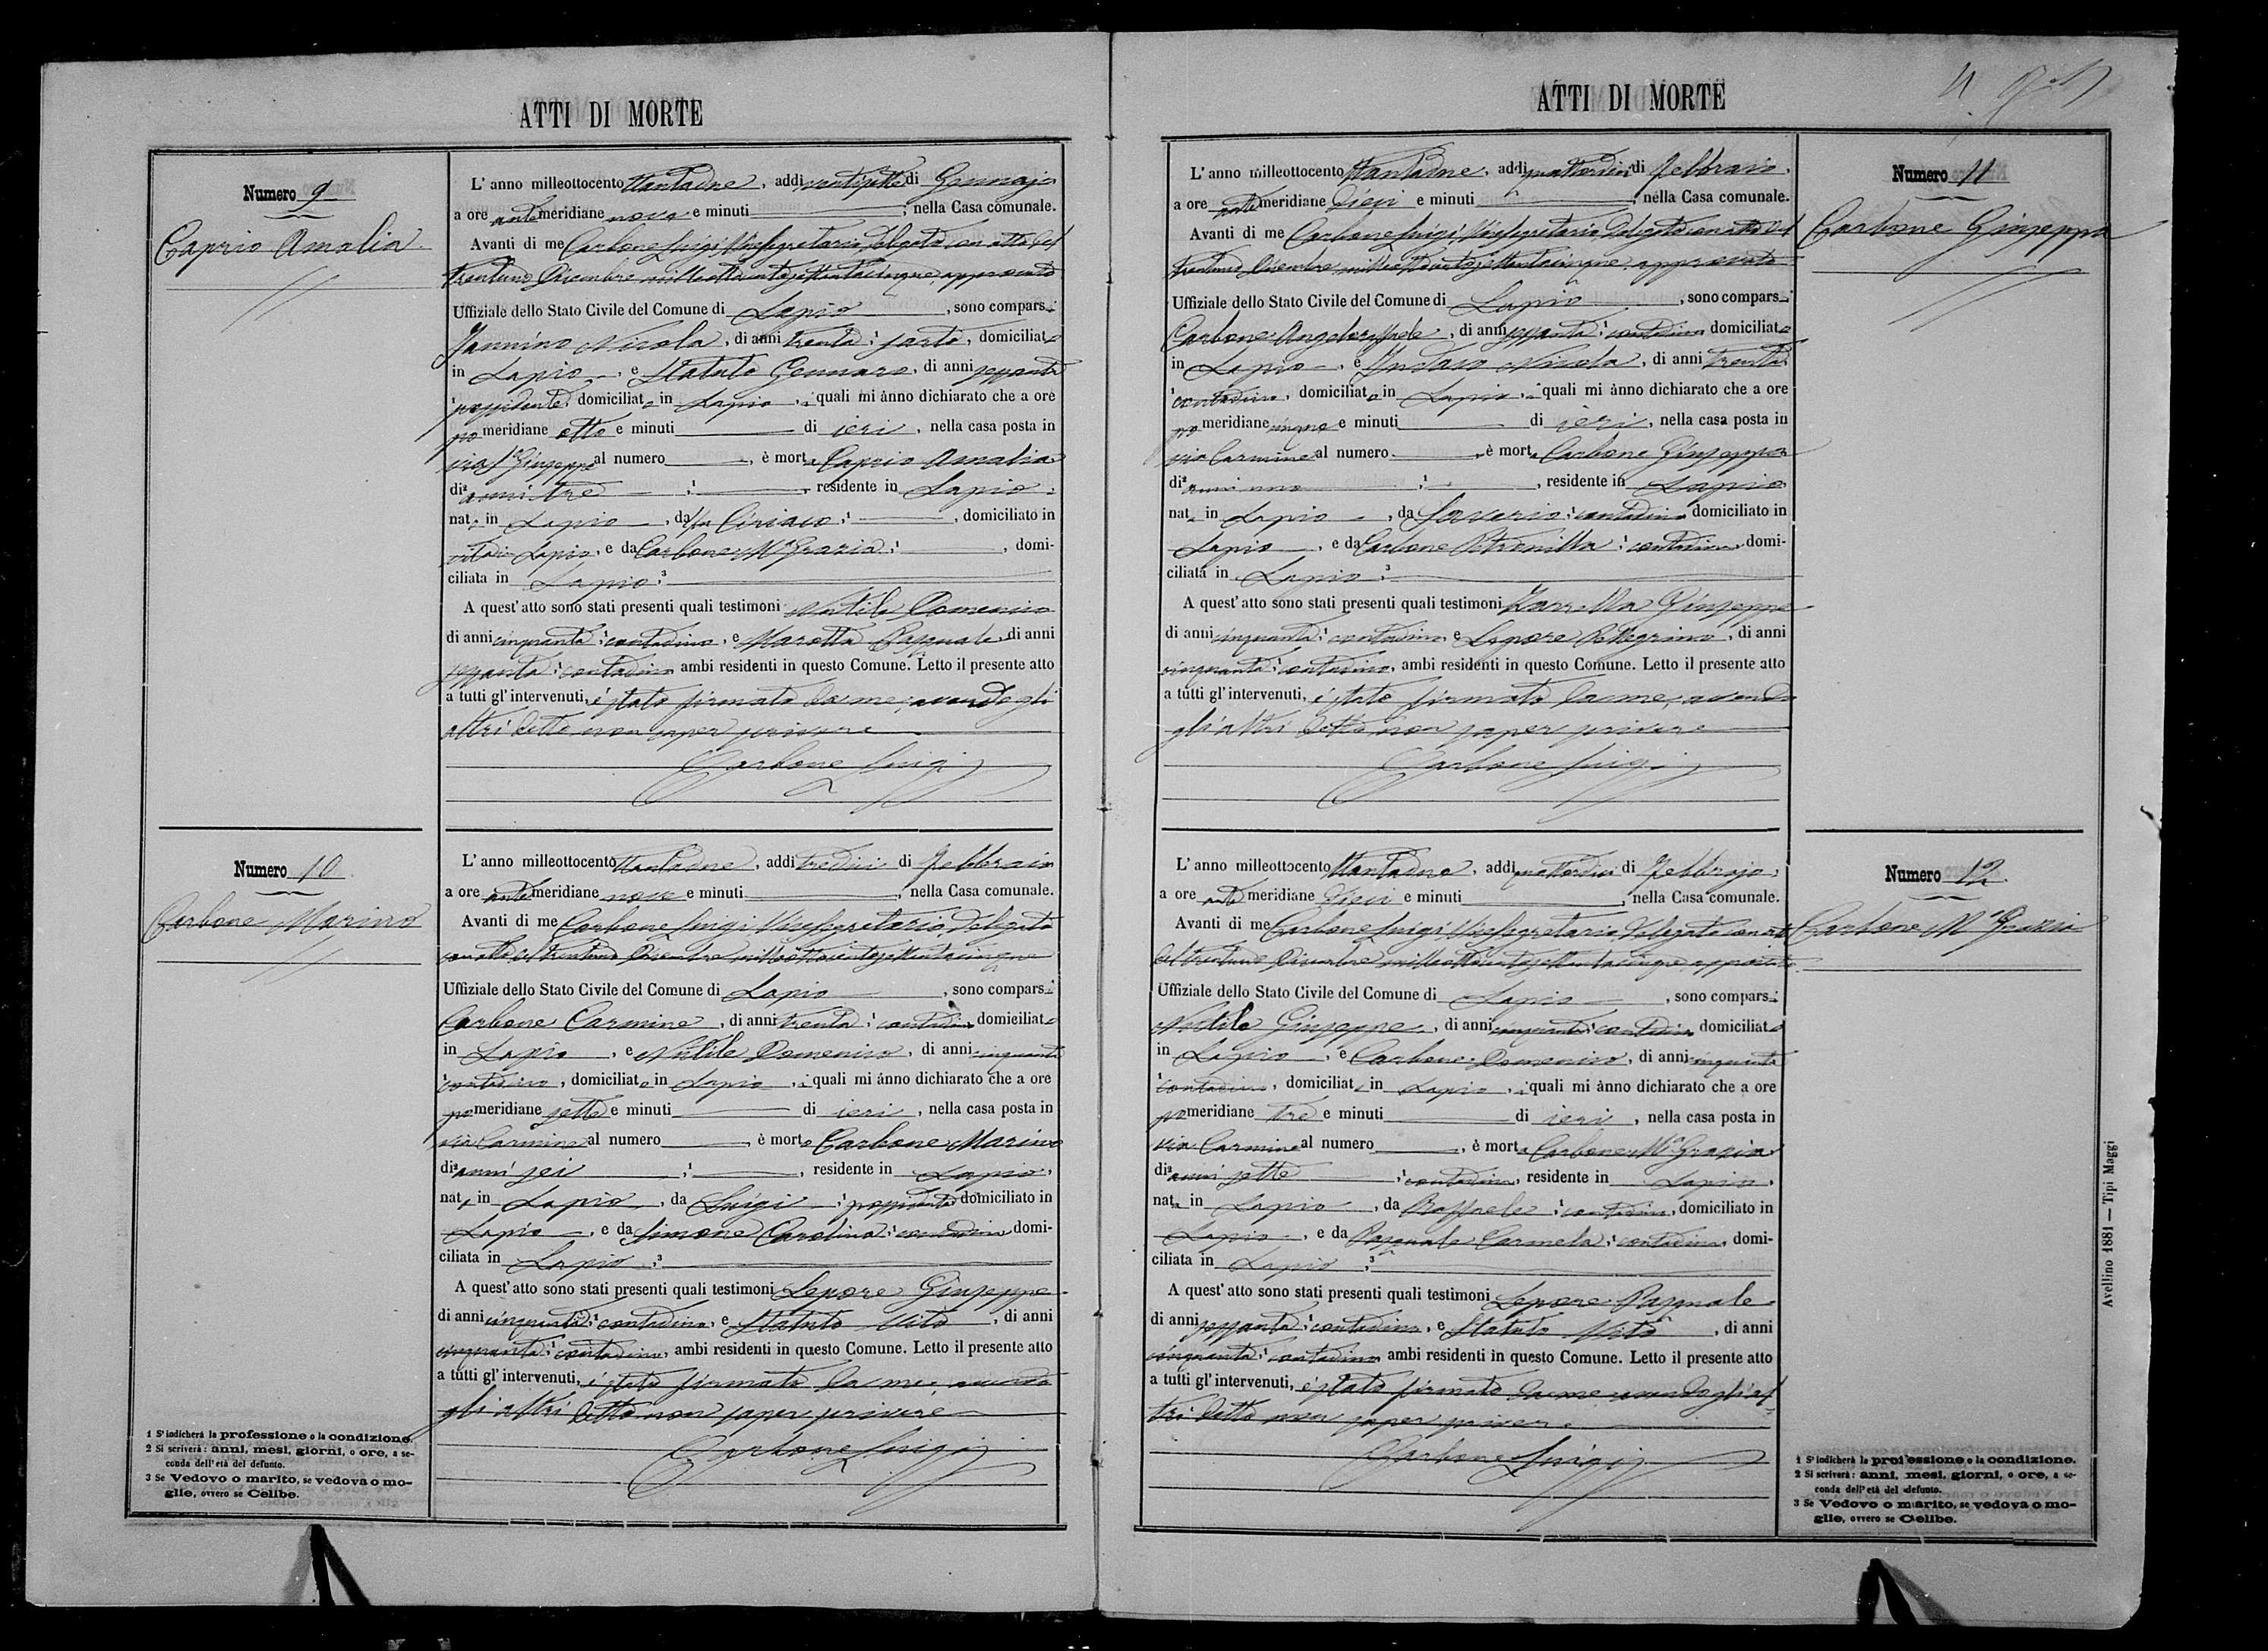 ATTI DI MORTE
Numero 9
Caprio Amalia
L' anno milleottocento ottantadue, addì ventisette di Gennajo
a ore antemeridiane nove e minuti, nella Casa comunale.
Avanti di me Carbone Luigi, Vicesegretario, delegato con atto del
trentuno Dicembre milleottocentosettantacinque, approvato
Uffiziale dello Stato Civile del Comune di Lapio, sono comparsi
Jannino Nicola, di anni trenta; sarto, domiciliato
in Lapio, e Statuto Gennaro, di anni sessanta
possidente, domiciliato in Lapio, i quali mi ànno dichiarato che a ore
pomeridiane otto e minuti di ieri, nella casa posta in
via S. Giuseppe al numero, è morta Caprio Amalia
di anni tre, residente in Lapio,
nata in Lapio, da Ciriaco, domiciliato in
Lapio, e da Carbone Ma Grazia, domi-
ciliata in Lapio;
A quest' atto sono stati presenti quali testimoni Nutile Domenico
di anni cinquanta; contadino, e Marotta Pasquale, di anni
sessanta; contadino ambi residenti in questo Comune. Letto il presente atto
a tutti gl' intervenuti, è stato firmato da me, avendo gli
altri detto non saper scrivere
Carbone Luigi
Numero 10
Carbone Marino
L' anno milleottocento ottantadue, addì tredici di Febbraio
a ore antemeridiane nove e minuti, nella Casa comunale.
Avanti di me Carbone Luigi Vicesegretario, delegato
con atto del trentuno Dicembre milleottocentosettantacinque
Uffiziale dello Stato Civile del Comune di Lapio, sono comparsi
Carbone Carmine, di anni trenta; contadino domiciliato
in Lapio, e Nutile Domenico, di anni cinquanta
contadino, domiciliato in Lapio, i quali mi ànno dichiarato che a ore
pomeridiane sette e minuti di ieri, nella casa posta in
via Carmine al numero, è morto Carbone Marino
di anni sei, residente in Lapio,
nato in Lapio, da Luigi; possidente domiciliato in
Lapio, e da Simone Carolina; contadina domi-
ciliata in Lapio;
A quest' atto sono stati presenti quali testimoni Lepore Giuseppe
di anni cinquanta; contadino, e Statuto Vito, di anni
cinquanta; contadino, ambi residenti in questo Comune. Letto il presente atto
a tutti gl' intervenuti, è stato firmato da me, avendo
gli altri detto non saper scrivere
Carbone Luigi
1 S' indicherà la professione o la condizione.
2 Si scriverà: anni, mesi, giorni, o ore, a se-
conda dell' età del defunto.
3 Se Vedovo o marito, se vedova o mo-
glie, ovvero se Celibe.
ATTI DI MORTE
Numero 11
Carbone Giuseppa
L' anno milleottocento ottantadue, addì quattordici di Febbraio,
a ore antemeridiane dieci e minuti, nella Casa comunale.
Avanti di me Carbone Luigi, Vicesegretario delegato con atto del
trentuno Dicembre milleottocentosettantacinque, approvato
Uffiziale dello Stato Civile del Comune di Lapio, sono comparsi
Carbone Angeloraffaele, di anni sessanta; contadino domiciliato
in Lapio, e Nicola, di anni trenta
contadino, domiciliato in Lapio, i quali mi ànno dichiarato che a ore
pomeridiane cinque e minuti di ieri, nella casa posta in
via Carmine al numero, è morta Carbone Giuseppa
di anni uno, residente in Lapio
nata in Lapio, da Saverio; contadino domiciliato in
Lapio, e da Carbone Petronilla; contadina, domi-
ciliata in Lapio;
A quest' atto sono stati presenti quali testimoni Zarrella Giuseppe
di anni cinquanta; contadino, e Lepore Pellegrino, di anni
cinquanta; contadino, ambi residenti in questo Comune. Letto il presente atto
a tutti gl' intervenuti, è stato firmato da me, avendo
gli altri detto non saper scrivere
Carbone Luigi
Numero 12
Carbone Ma Grazia
L' anno milleottocento ottantadue, addì quattordici di Febbrajo,
a ore antemeridiane dieci e minuti, nella Casa comunale.
Avanti di me Carbone Luigi Vicesegretario, delegato con atto
del trentuno Dicembre milleottocentosettantacinque approvato
Uffiziale dello Stato Civile del Comune di Lapio, sono comparsi
Nutile Giuseppe, di anni cinquanta; contadino domiciliato
in Lapio, e Carbone Domenico, di anni cinquanta
contadino, domiciliato in Lapio, i quali mi ànno dichiarato che a ore
pomeridiane tre e minuti di ieri, nella casa posta in
via Carmine al numero, è morta Carbone Ma Grazia
di anni sette; contadina, residente in Lapio,
nata in Lapio, da Raffaele; contadino, domiciliato in
Lapio, e da Pasquale Carmela; contadina, domi-
ciliata in Lapio;
A quest' atto sono stati presenti quali testimoni Lepore Pasquale
di anni sessanta; contadino, e Statuto Vito, di anni
cinquanta; contadino ambi residenti in questo Comune. Letto il presente atto
a tutti gl' intervenuti, è stato firmato da me avendo gli al-
tri detto non saper scrivere
Carbone Luigi
1 S' indicherà la professione o la condizione.
2 Si scriverà: anni, mesi, giorni, o ore, a se-
conda dell' età del defunto.
3 Se Vedovo o marito, se vedova o mo-
glie, ovvero se Celibe.
Avellino 1881 — Tipi Maggi